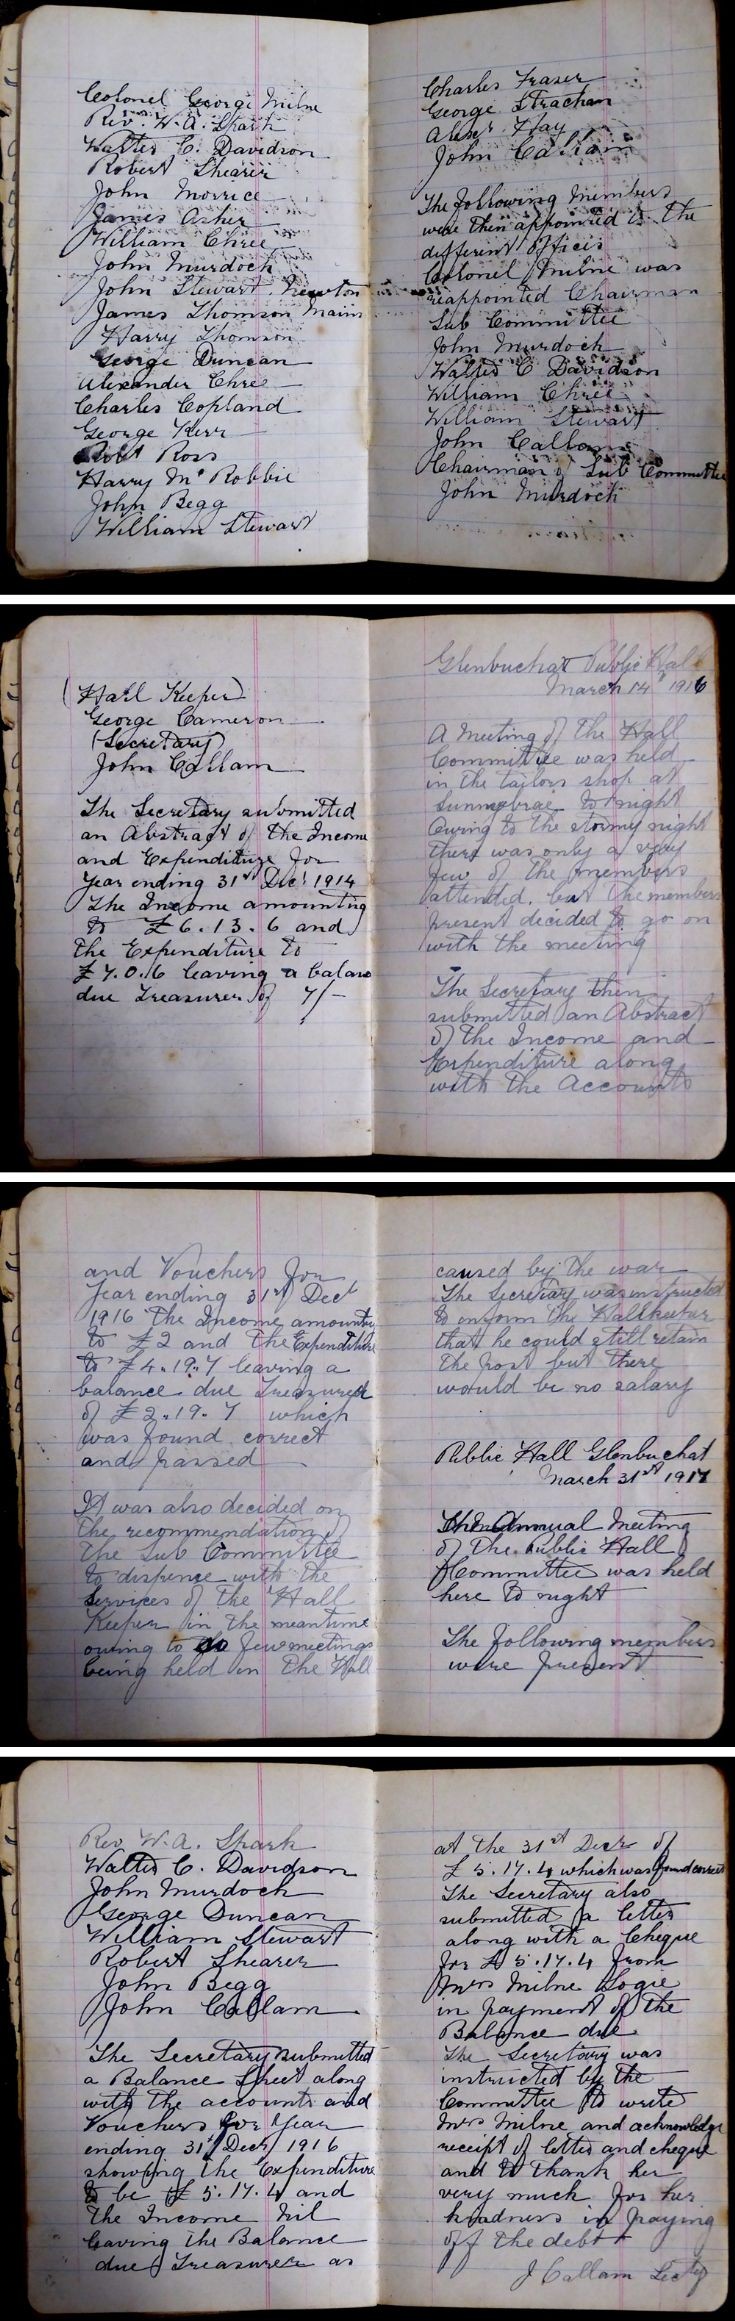 Colonel George Milne
Rev. W. A. Spark
Walter C. Davidson
Robert Shearer
John Morrice
James Asher
William Chree
John Murdoch
John Stewart Newton
James Thomson Mains
Harry Thomson
George Duncan
Alexander Chree
Charles Copland
George Kerr
Robt Ross
Harry Mc Robbie
John Begg
William Stewart
Charles Fraser
George Strachan
Alexr Hay
John Callam
The following Members
were then appointed to the
different offices
Colonel Milne was
reappointed Chairman
Sub Committee
John Murdoch
Walter C Davidson
William Chree
William Stewart
John Callam
Chairman of Sub Committee
John Murdoch
(Hall Keeper)
George Cameron
(Secretary)
John Callam
The Secretary submitted
an Abstract of the Income
and Expenditure for
Year ending 31st Dec 1914
The Income amounting
to £6.13.6 and
the Expenditure to
£7.0.6 leaving a balance
due Treasurer of 7/-
Glenbuchat Public Hall
March 14th 1916
A Meeting of the Hall
Committee was held
in the tailors shop at
Sunnybrae to night
Owing to the stormy night
there was only a very
few of the members
attended, but the members
present decided to go on
with the meeting
The Secretary then
submitted an Abstract
of the Income and
Expenditure along
with the Accounts
and Vouchers for
Year ending 31st Dec
1916 The Income amounting
to £2 and the Expenditure
to £4.19.7 leaving a
balance due Treasurer
of £2.19.7 which
was found correct
and passed
It was also decided on
the recommendation of
the Sub Committee
to dispense with the
services of the Hall
Keeper in the meantime
owing to so few meetings
being held in the Hall
caused by the war
The Secretary was instructed
to inform the Hallkeeper
that he could still retain
the post but there
would be no salary
Public Hall Glenbuchat
March 31st 1917
The Annual Meeting
of the Public Hall
Committee was held
here to night
The following members
were present
Rev. W. A. Spark
Walter C. Davidson
John Murdoch
George Duncan
William Stewart
Robert Shearer
John Begg
John Callam
The Secretary submitted
a Balance Sheet along
with the accounts and
Vouchers for Year
ending 31st Decr 1916
showing the Expenditure
to be £5.17.4 and
the Income Nil
leaving the Balance
due Treasurer as
at the 31st Decr of
£5.17.4 which was found correct
The Secretary also
submitted a letter
along with a Cheque
for £5.17.4 from
Mrs Milne Logie
in payment of the
Balance due
The Secretary was
instructed by the
Committee to write
Mrs Milne and acknowledge
receipt of letter and cheque
and to thank her
very much for her
kindness in paying
off the debt
J Callam Secty